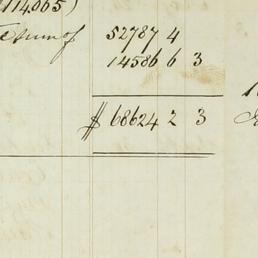 114.065)
sum of 52787 4
14586 6 3
$ 68624 2 3